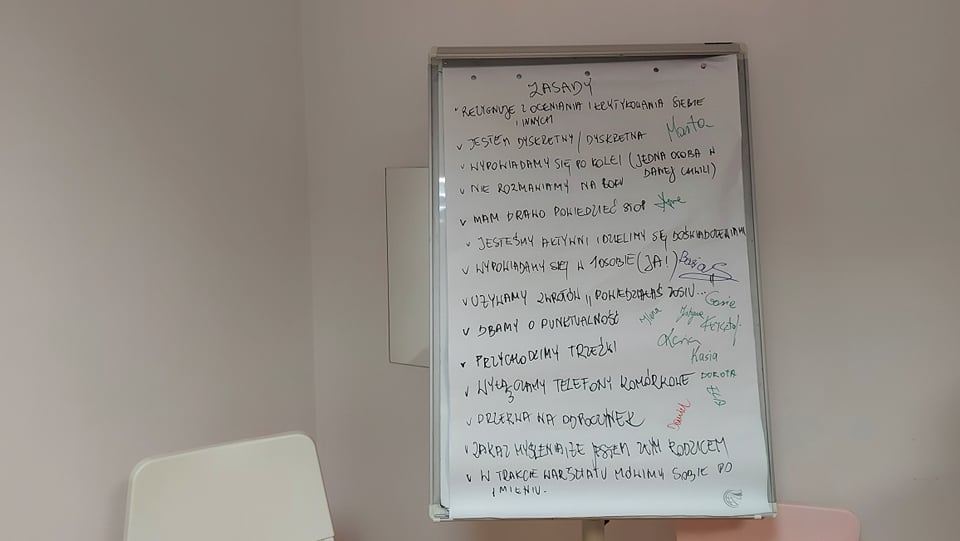 ZASADY
REZYGNUJĘ Z OCENIANIA I KRYTYKOWANIA SIEBIE
I INNYCH
JESTEM DYSKRETNY / DYSKRETNA Marta
WYPOWIADAMY SIĘ PO KOLEI (JEDNA OSOBA W
DANEJ CHWILI)
NIE ROZMAWIAMY NA BOKU
MAM PRAWO POWIEDZIEĆ STOP
JESTEŚMY AKTYWNI I DZIELIMY SIĘ DOŚWIADCZENIAMI
WYPOWIADAMY SIĘ W 1 OSOBIE (JA!) Basia
UŻYWAMY ZWROTÓW „POWIEDZIAŁAŚ ZOSIU..."
Gosia
DBAMY O PUNKTUALNOŚĆ Krzysztof
PRZYCHODZIMY TRZEŹWI
Kasia
WYŁĄCZAMY TELEFONY KOMÓRKOWE DOROTA
PRZERWA NA ODPOCZYNEK Daniel
ZAKAZ MYŚLENIA ŻE JESTEM ZŁYM RODZICEM
W TRAKCIE WARSZTATU MÓWIMY SOBIE PO
IMIENIU.